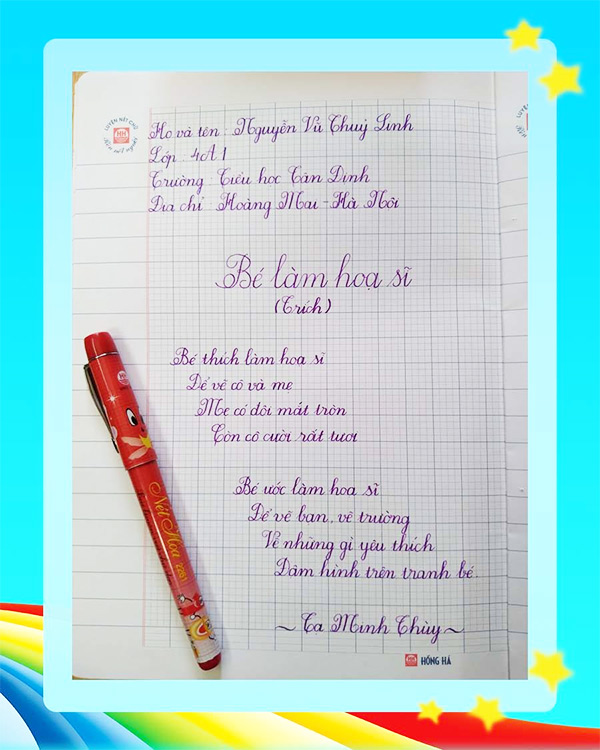 LUYỆN NÉT CHỮ
Rèn nét người
Họ và tên : Nguyễn Vũ Thuỳ Linh
Lớp : 4A1
Trường Tiểu học Tân Định
Địa chỉ Hoàng Mai - Hà Nội
Bé làm hoạ sĩ
(Trích)
Bé thích làm hoạ sĩ
Để vẽ cô và mẹ
Mẹ có đôi mắt tròn
Còn cô cười rất tươi
Bé ước làm hoạ sĩ
Để vẽ bạn, vẽ trường
Vẽ những gì yêu thích
Đậm hình trên tranh bé.
~ Tạ Minh Thùy ~
HH HỒNG HÀ
Nét Hoa 2261